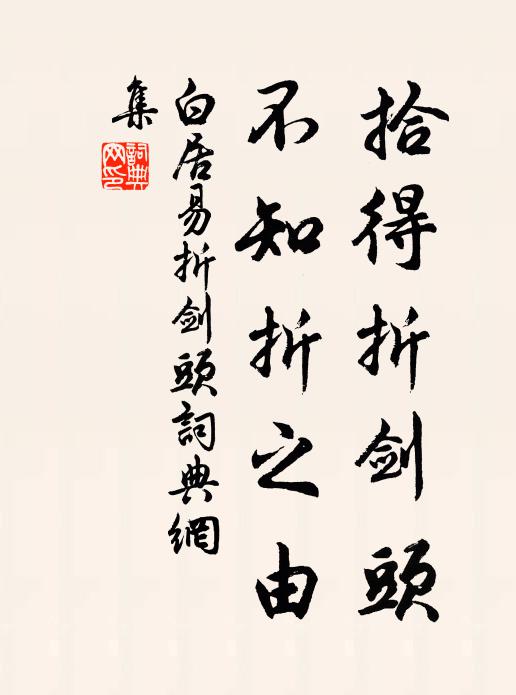 拾得折剑頭
不知折之由
白居易折剑頭詞典網
集
詞典网印